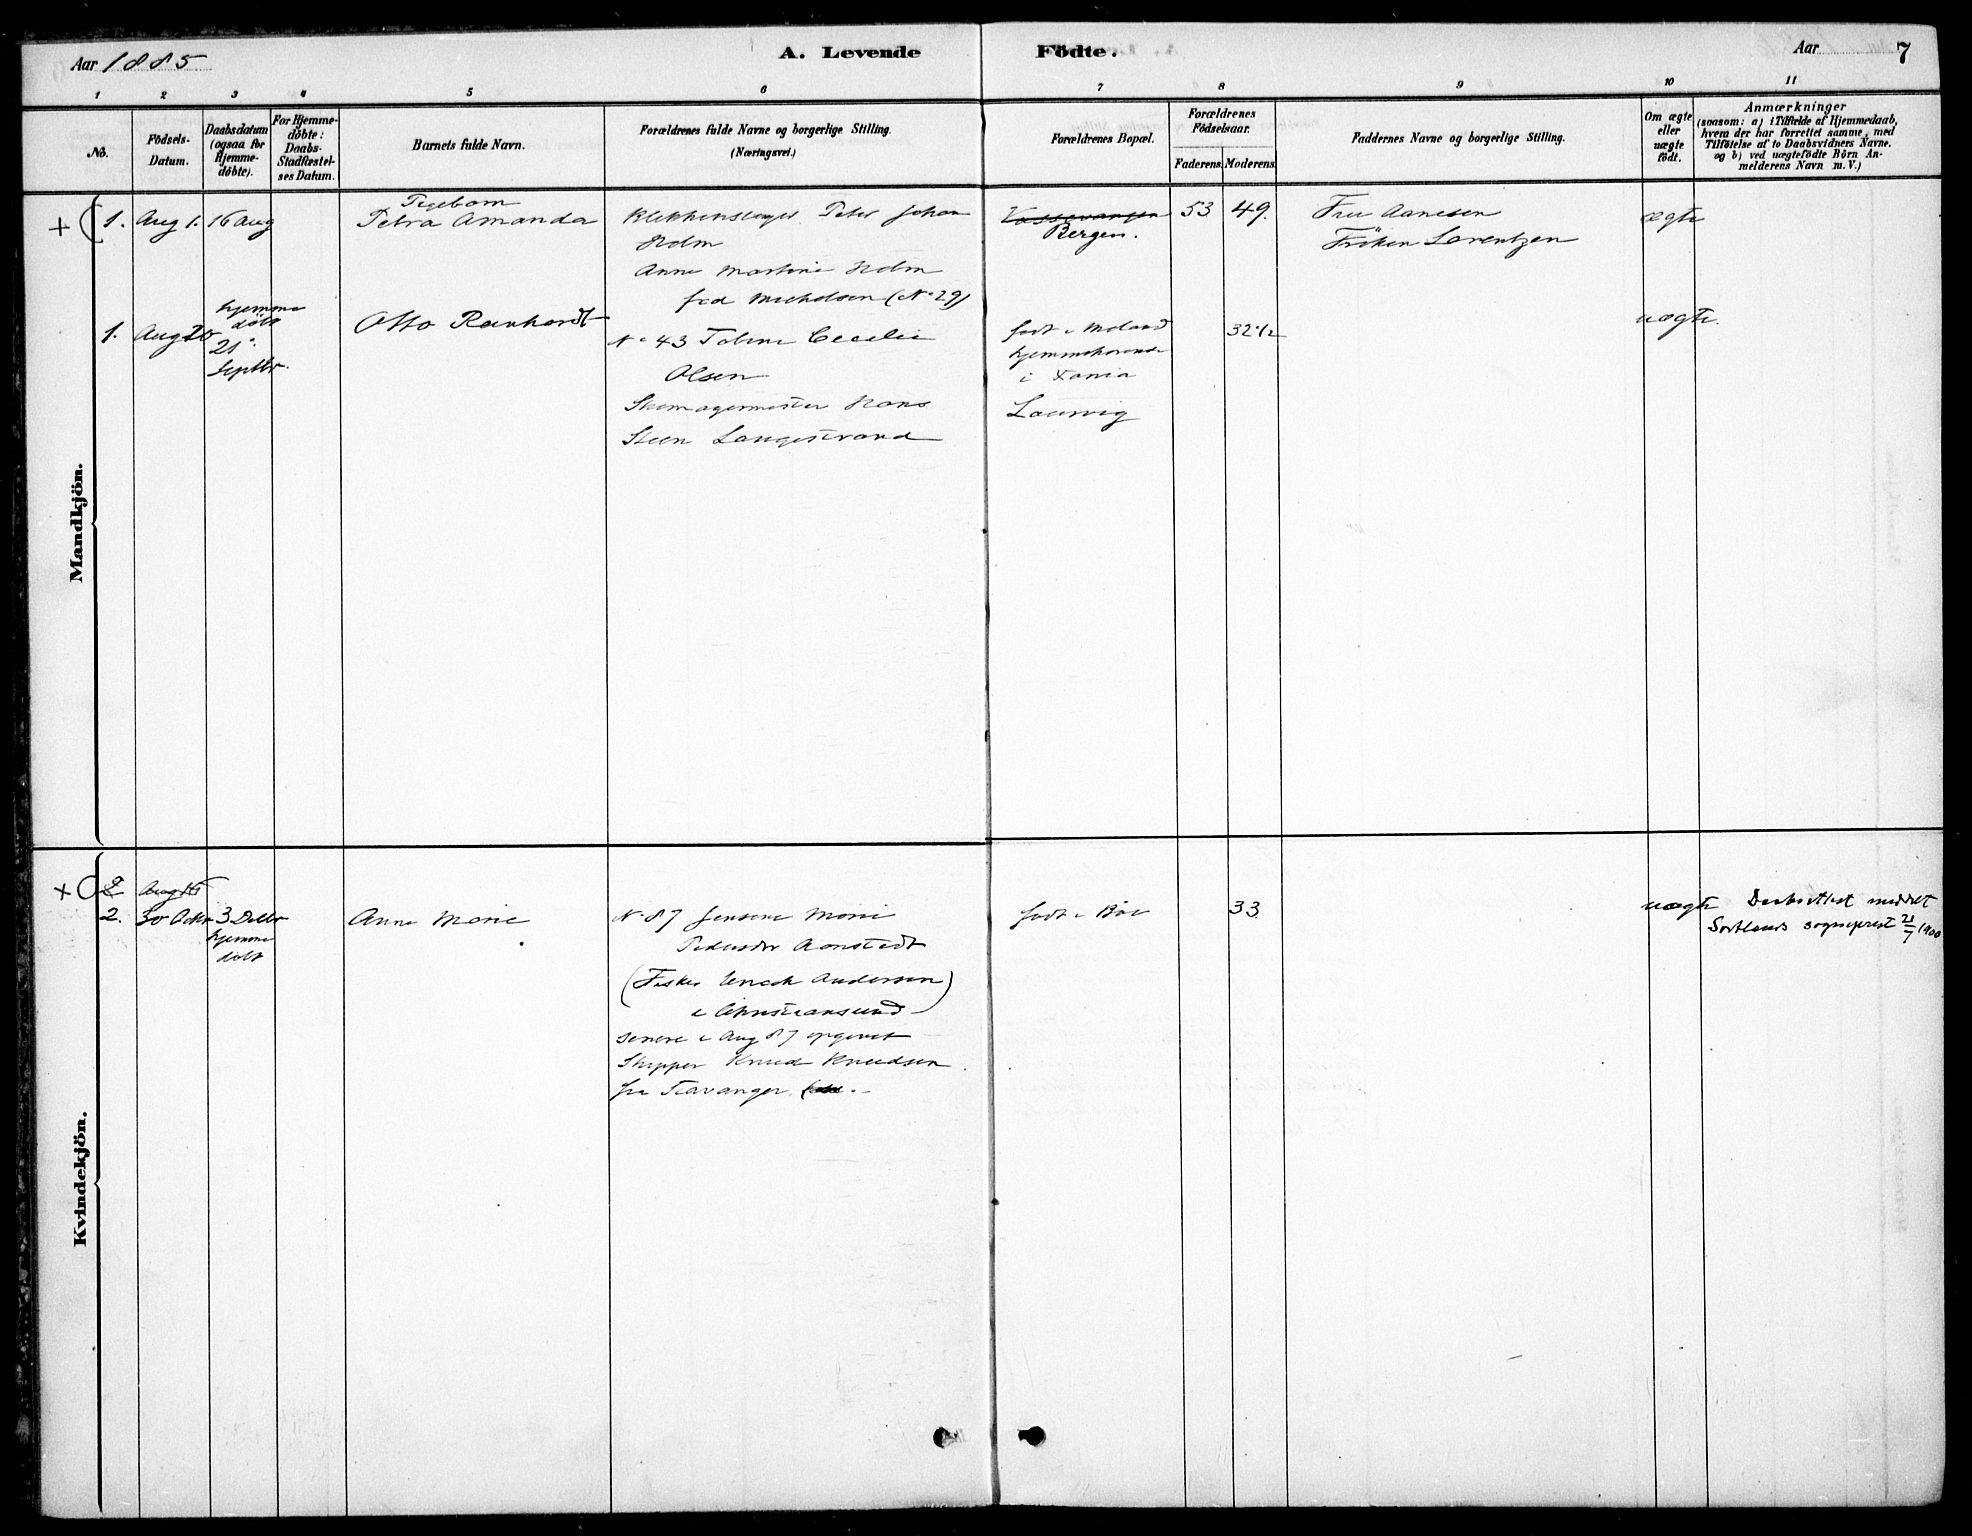 Aar 1885
A. Levende Födte.
Aar
7
1 2 3 4 5 6 7 8 9 10 11
No.
Födsels-
Datum.
Daabsdatum
(ogsaa for
Hjemme-
döbte).
For Hjemme-
döbte:
Daabs-
Stadfæstel-
ses Datum.
Barnets fulde Navn.
Forældrenes fulde Navne og borgerlige Stilling.
(Næringsvei.)
Forældrenes Bopæl.
Forældrenes
Födselsaar.
Faderens. Moderens.
Faddernes Navne og borgerlige Stilling.
Om ægte
eller
uægte
födt.
Anmærkninger
(saasom: a) i Tilfælde af Hjemmedaab,
hvem der har forrettet samme, med
Tilföielse af to Daabsvidners Navne.
og b) ved uægtefödte Börn An-
melderens Navn m. V.)
Mandkjön.
+ 1. Aug 1. 16 Aug
Pigebarn
Petra Amanda
Blikkenslager Peter Johan
Holm
Anne Martine Holm
fød Michelsen (No 29)
Vossevangen
Bergen.
53 49.
Fru Aanesen
Fröken Lorentzen
ægte
1. Aug
hjemme
döbt
21
Septbr.
Otto Reinhardt
No 43 Tobine Cecilie
Olsen
Skomagermester Hans
Steen Langestrand
født i Moland
hjemmehørende
i Xania
Laurvig
32 1/2
uægte.
Kvindekjön.
+ 2 Aug 16
2. 30 Oktr 3 Decbr
hjemme
døbt
Anne Marie
No 87 Jensine Marie
Pedersdtr Aanstadt
(Fisker Enoch Andersen)
i Christiansund
senere i Aug 87 opgivet
Skipper Knud Knudsen
fra Stavanger.
født i Bøe
33.
uægte
Daabsattest meddelt
Sortlands sogneprest 21/7 1900